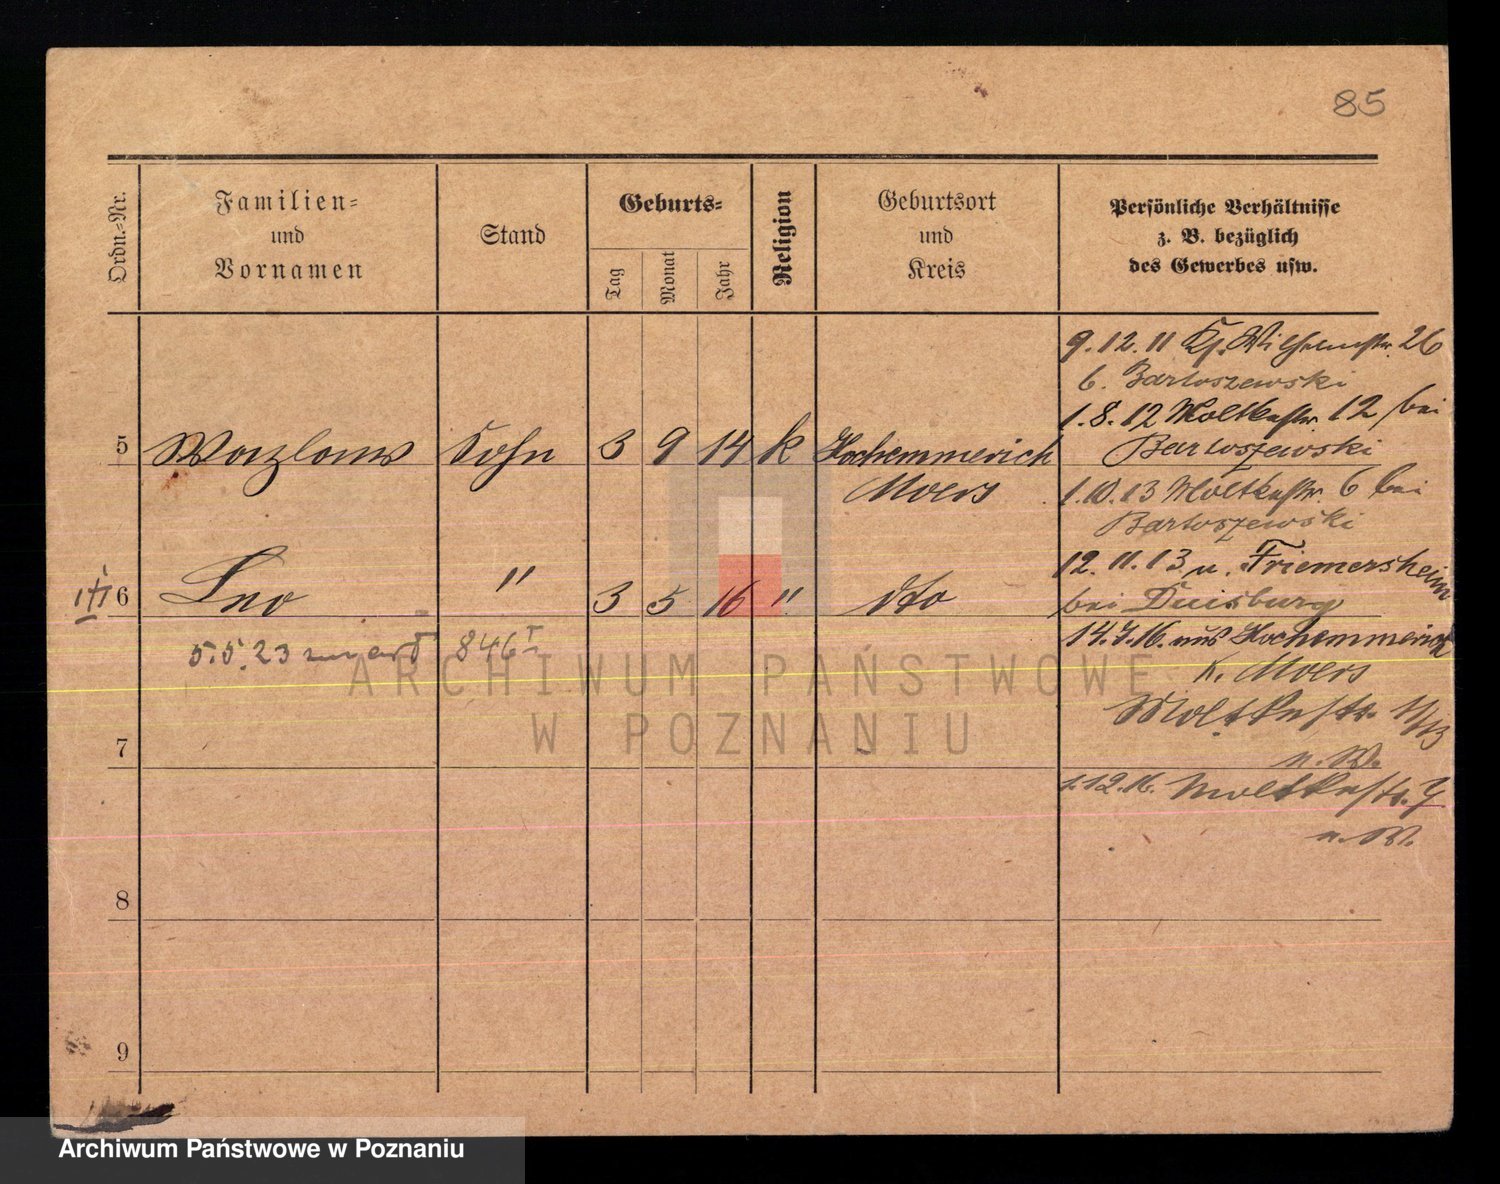 85
Ordn.-Nr.
Familien-
und
Vornamen
Stand
Geburts-
Tag
Monat
Jahr
Religion
Geburtsort
und
Kreis
Persönliche Verhältnisse
z. B. bezüglich
des Gewerbes usw.
9. 12. 11 Wilhelmstr. 26
b. Bartoszewski
1. 8. 12 Moltkestr. 12 bei
Bartoszewski
5 Wazlaw Sohn 3 9 14 k Hochemmerich
Moers
1. 10. 13 Moltkestr. 6 bei
Bartoszewski
12. 11. 13 n. Friemersheim
bei Duisburg
6 Leo " 3 5 16 " dto
14. 7. 16. aus Hochemmerich
K. Moers
5.5.23 zmarł 846 I
Moltkestr. 11/13
n. W.
7
1. 12. 16. Moltkestr. 7
n. W.
8
9
ARCHIWUM PAŃSTWOWE
W POZNANIU
Archiwum Państwowe w Poznaniu